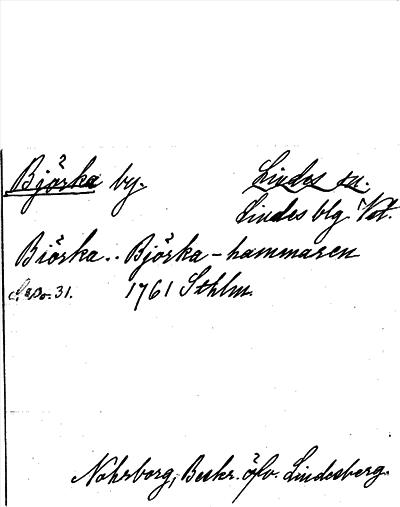 Björka by. Lindes sn.
Lindes blg. Vstm.
Biörka .. Björka-hammaren
S. 31. 1761 Sthlm.
Nohrborg, Beskr. öfv. Lindesberg.